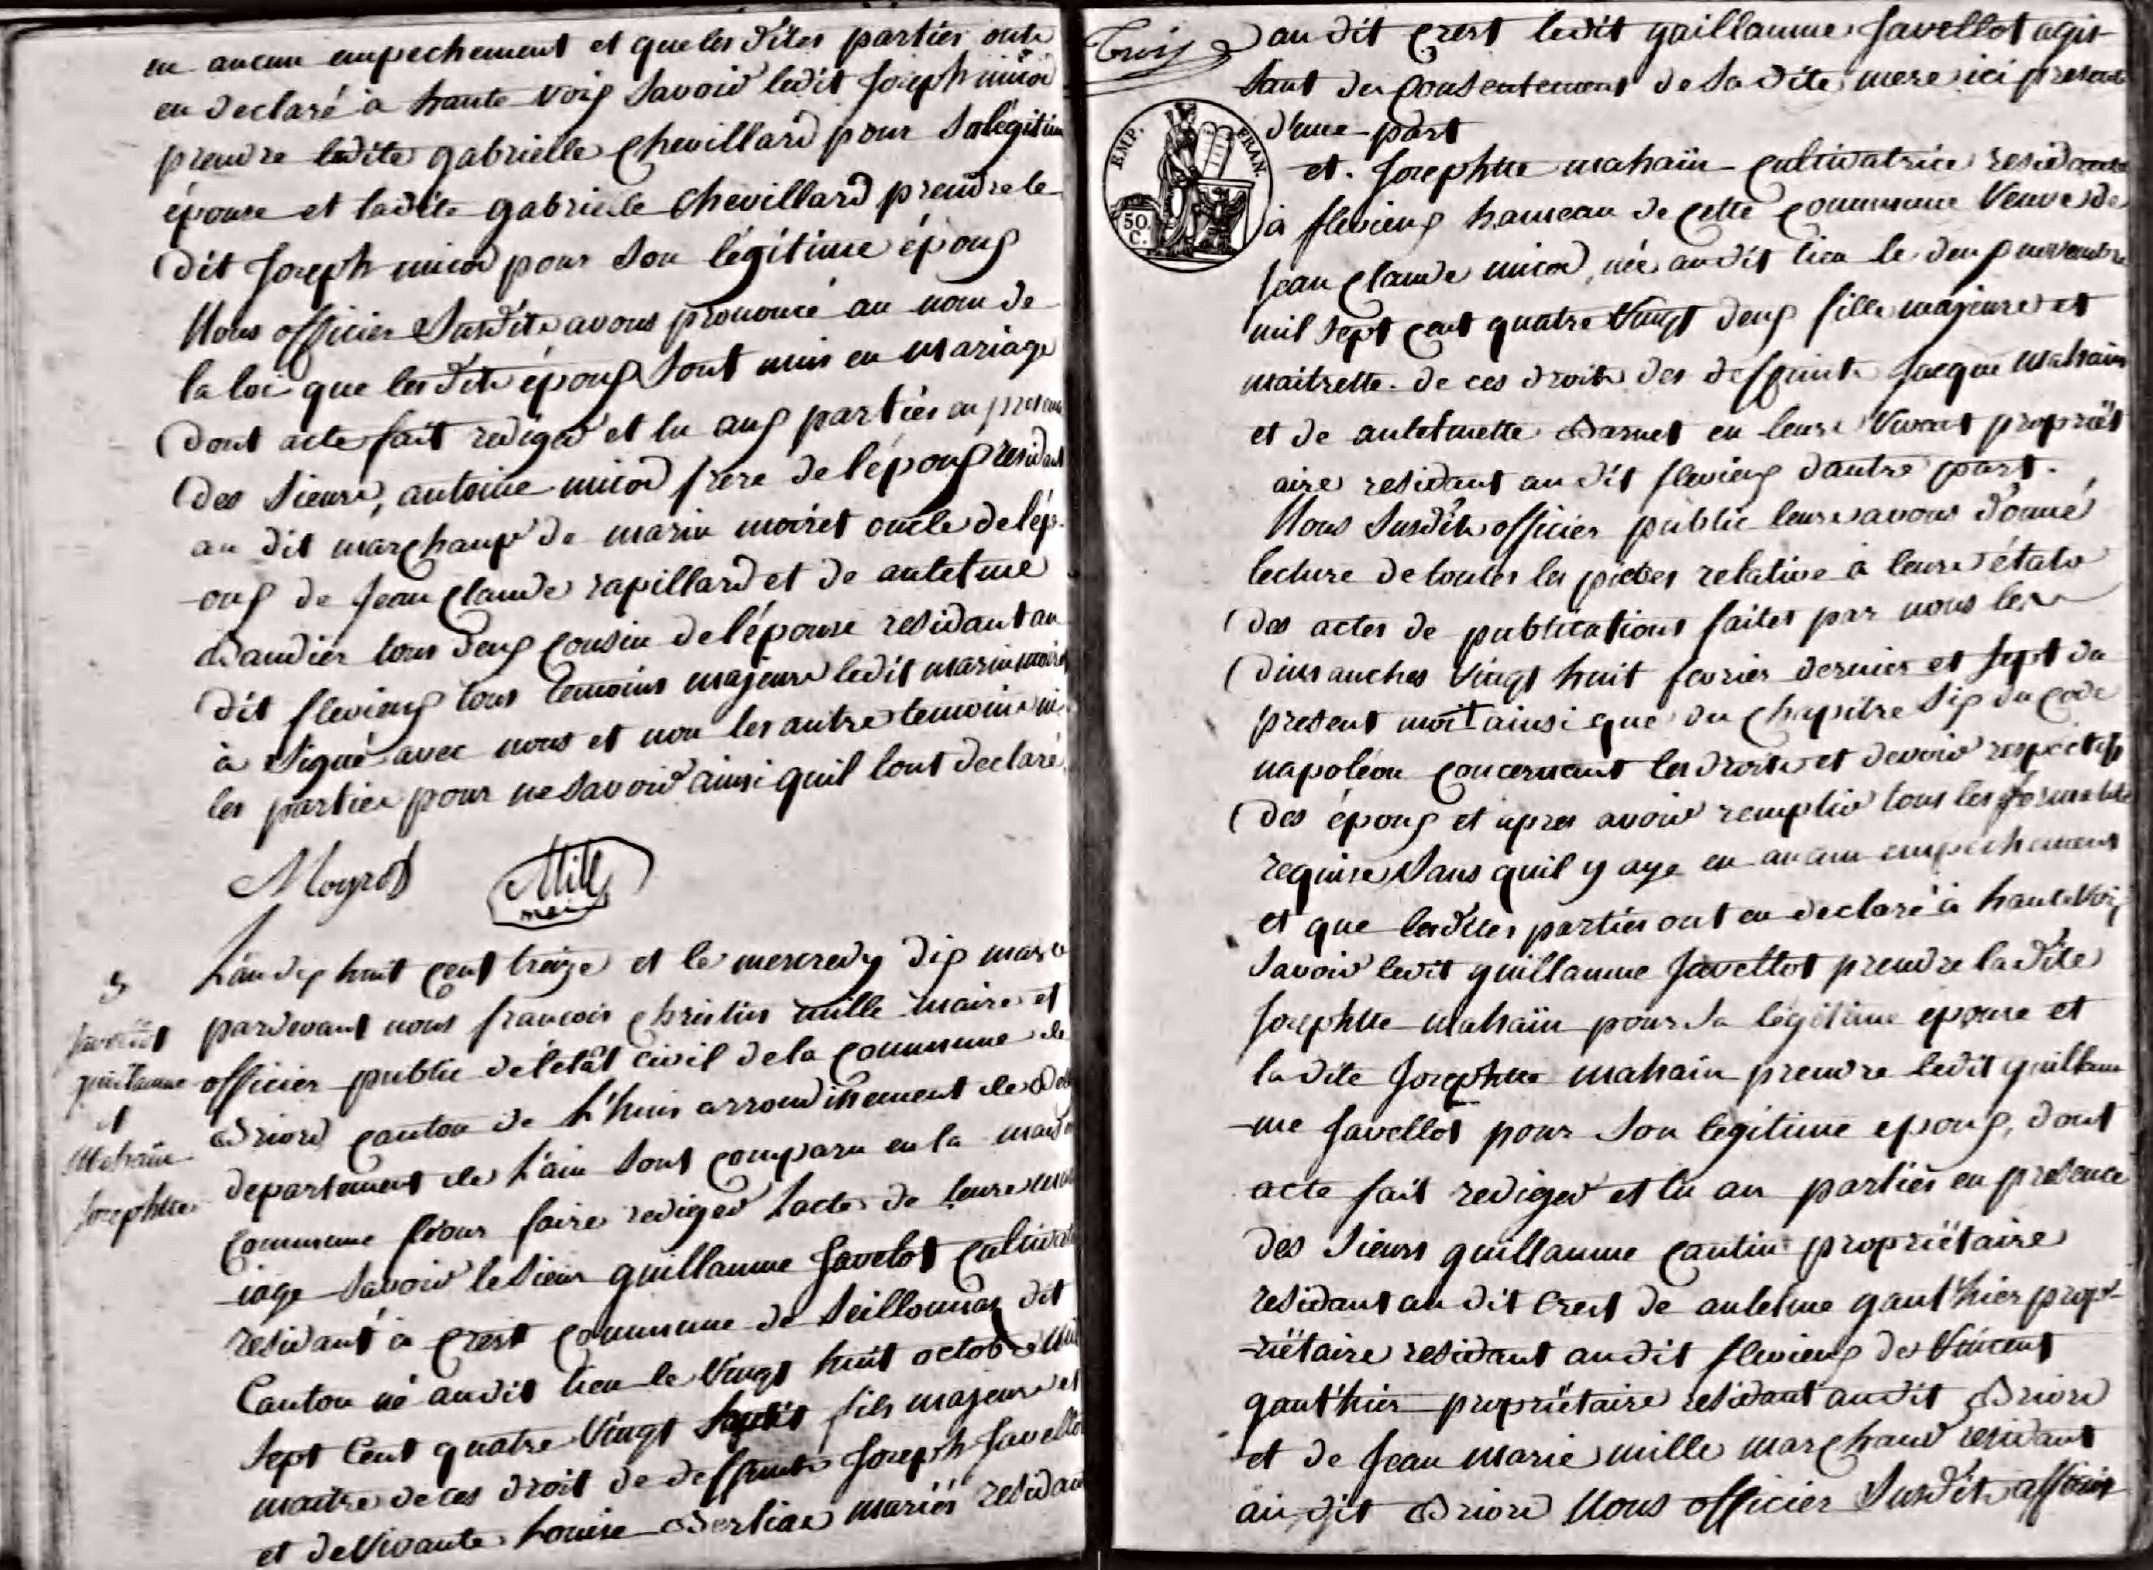 eu aucun empechement et que les dites parties onts
en declaré à haute voix savoir ledit Joseph micod
prendre ledite gabrielle chevillard pour sa légitim
épouse et ladite gabrielle chevillard prendre le
dit Joseph micod pour son légitime époux
Nous officier susdits avons prononcé au nom de
la loi que les dits époux sont unis en mariage
dont acte fait rediger et lu aux parties en presen
des sieurs, antoine micod frere de lépoux residant
au dit marchamp de marin moiret oncle de lép-
oux de Jean claude rapillard et de antelme
baudier tous deux cousin de l'épouse residant au
dit flevieux tous temoins majeurs ledit marin moiret
à signé avec nous et non les autre temoins ni
les parties pour ne savoir ainsi quil lont declaré
Moyret Mille
maire
3
Javellot
guillaume
et
Mahaïn
Josephtte
L'an dix huit cent treize et le mercredy dix mars
pardevant nous francois christin mille maire et
officier public de létat civil de la commune de
Briord canton de L'huis arrondissement de Bel
departement de L'ain sont comparu en la maiso
commune pour faire rediger Lacte de leurs mar
-iage savoir le sieur guillaume Javelot cultivat
residant à crest commune de Seillonnas dit
Canton né audit lieu le vingt huit octobre mil
sept Cent quatre vingt sept fils majeur et
maitre de ces droit de deffunts Joseph Javello
et de vivante Louise Berliaz mariés residant
Trois
audit crest ledit guillaume Javellot agis-
sant du consentement de sa dite mere ici presente
d'une part
EMP. FRAN.
50.
C.
et. Josephtte mahaïn cultivatrice residante
à flevieux hameau de cette commune veuve de
Jean claude micod, née audit lieu le deux novembre
mil sept cent quatre vingt deux fille majeure et
maitresse de ces droits des deffunts Jacque mahain
et de antelmette Barnet en leurs vivant propriét
aire residant au dit flevieux dautre part.
Nous susdits officier public leurs avons donné
lecture de toutes les pieces relative à leurs états
des actes de publications faites par nous les
dimanches vingt huit fevrier dernier et sept du
present moit ainsi que du chapitre six du code
napoléon concernant les droits et devoir respectifs
des époux et apres avoir remplir tous les formalité
requise sans quil y aye eu aucun empechement
et que lesdites parties ont eu declaré à haute voix
savoir ledit guillaume Javellot prendre la dite
Josephtte mahaïn pour sa légitime epouse et
la dite Josephtte mahain prendre ledit guillau
-me Javellot pour son legitime epoux, dont
acte fait rediger et lu au parties en presence
des sieurs guillaume cantin propriétaire
residant au dit Crest de antelme gauthier prop-
-riétaire residant audit flevieux de vincent
gauthier propriétaire residant audit Briord
et de Jean marie mille marchand residant
au dit Briord Nous officier susdits